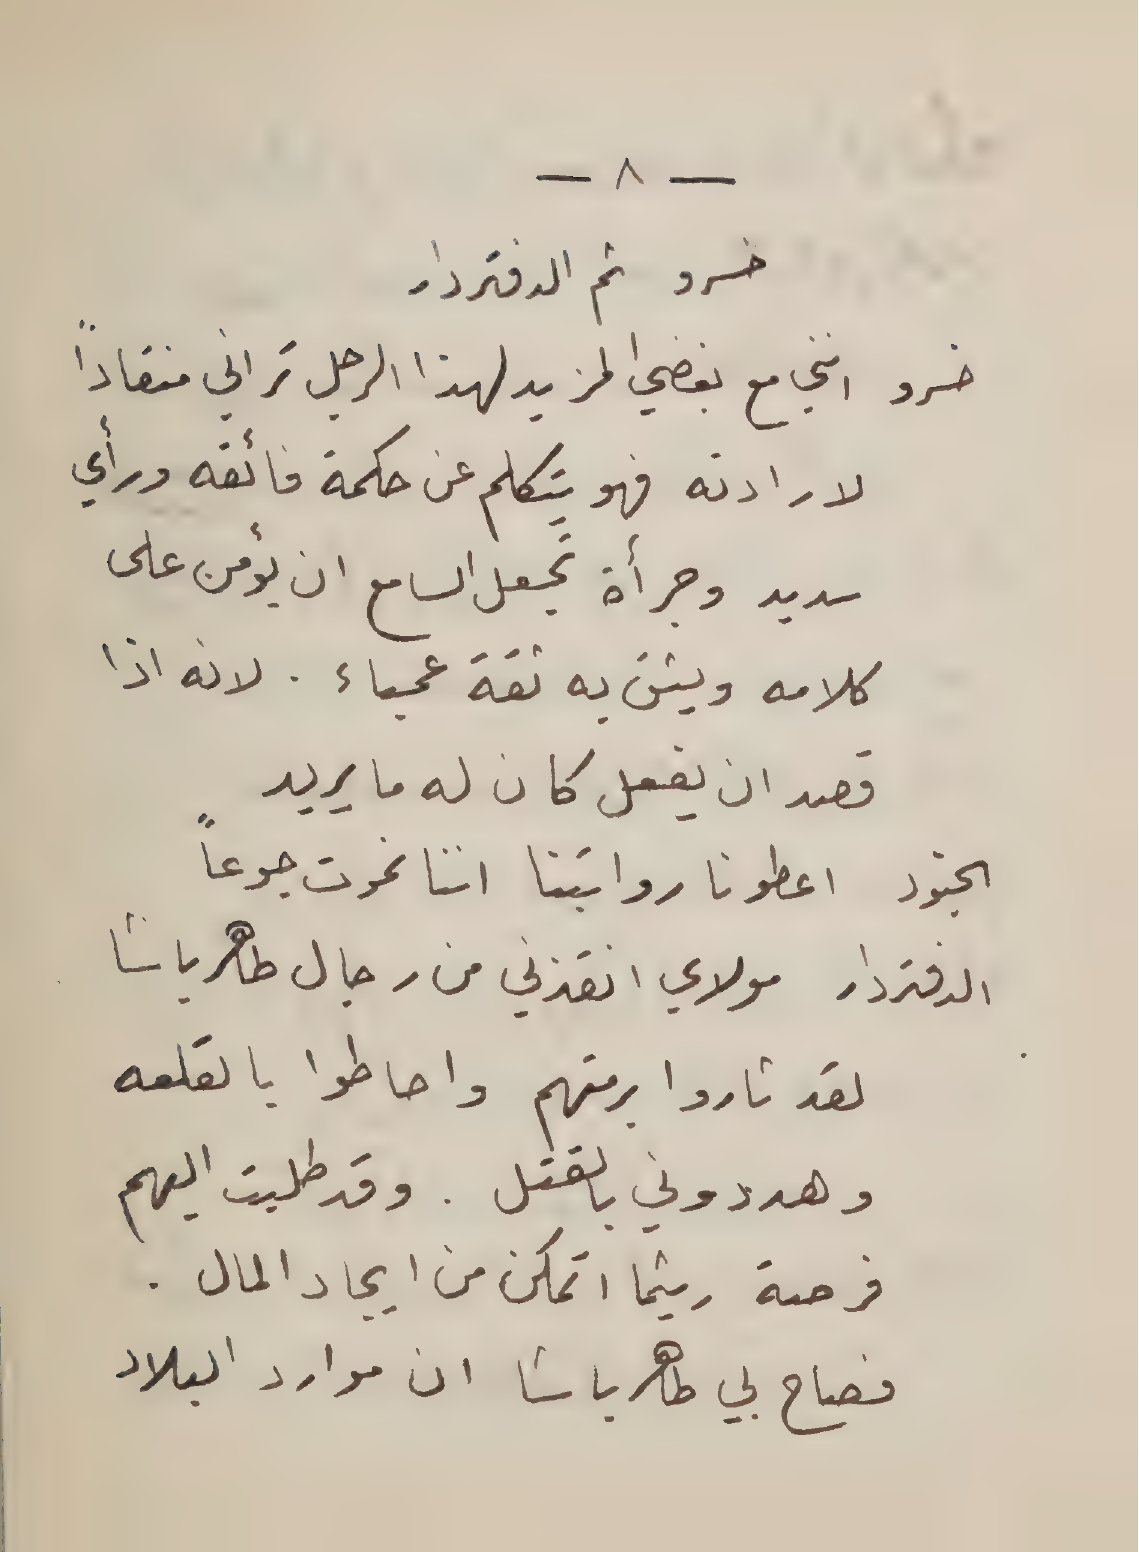 — ٨ —
خسرو ثم الدفتردار
خسرو انني مع بغضي المزيد لهذا الرجل تراني منقاداً
لارادته فهو يتكلم عن حكمة فائقه ورأي
سديد وجرأة تجعل السامع ان يؤمن على
كلامه ويثق به ثقة عمياء . لانه اذا
قصد ان يفعل كان له ما يريد
الجنود اعطونا رواتبنا اننا نموت جوعاً
الدفتردار مولاي انقذني من رجال طاهر باشا
لقد ثاروا برمتهم واحاطوا بالقلعه
وهددوني بالقتل . وقد طلبت اليهم
فرصة ريثما اتمكن من ايجاد المال .
فصاح بي طاهر باشا ان موارد البلاد